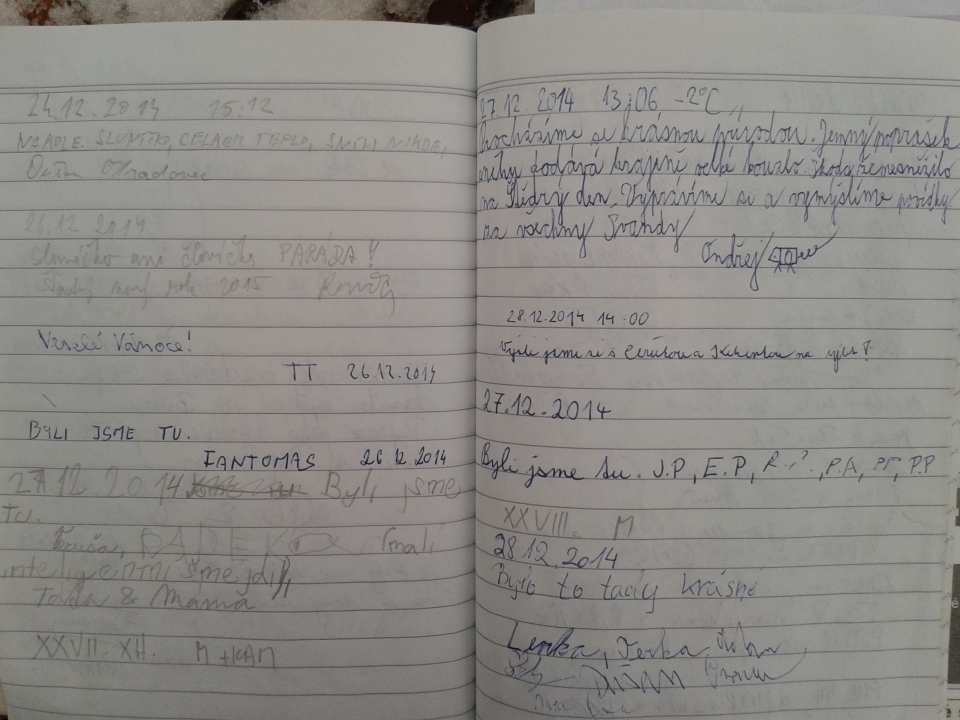 24.12.2014 15:12
NA KOLE. SLUNÍČKO, CELKEM TEPLO, SNÍH NIKDE,
26.12.2014
Sluníčko ani človíčka PARÁDA!
Šťastný nový rok 2015
Veselé Vánoce!
TT 26.12.2014
BYLI JSME TU.
FANTOMAS 26.12.2014
27 12 2014 Byli jsme
tu.
malí
inteligentní šmejdi,
Táda & Máma
XXVII. XII. M + KAM
27.12.2014 13:06 -2°C
Kocháme se krásnou přírodou. Jemný poprašek
sněhu dodává krajině velké kouzlo. Škoda, že nesněžilo
na Štědrý den. Vyprávíme si a vymýšlíme povídky
na všechny Svandy
Ondřej
28.12.2014 14.00
Vyšli jsme si s a na výlet!
27.12.2014
Byli jsme tu. J.P, E.P, R.P., P.A, PP, P.P
XXVIII. M
28.12.2014
Bylo to tady krásné
Lenka, Terka,